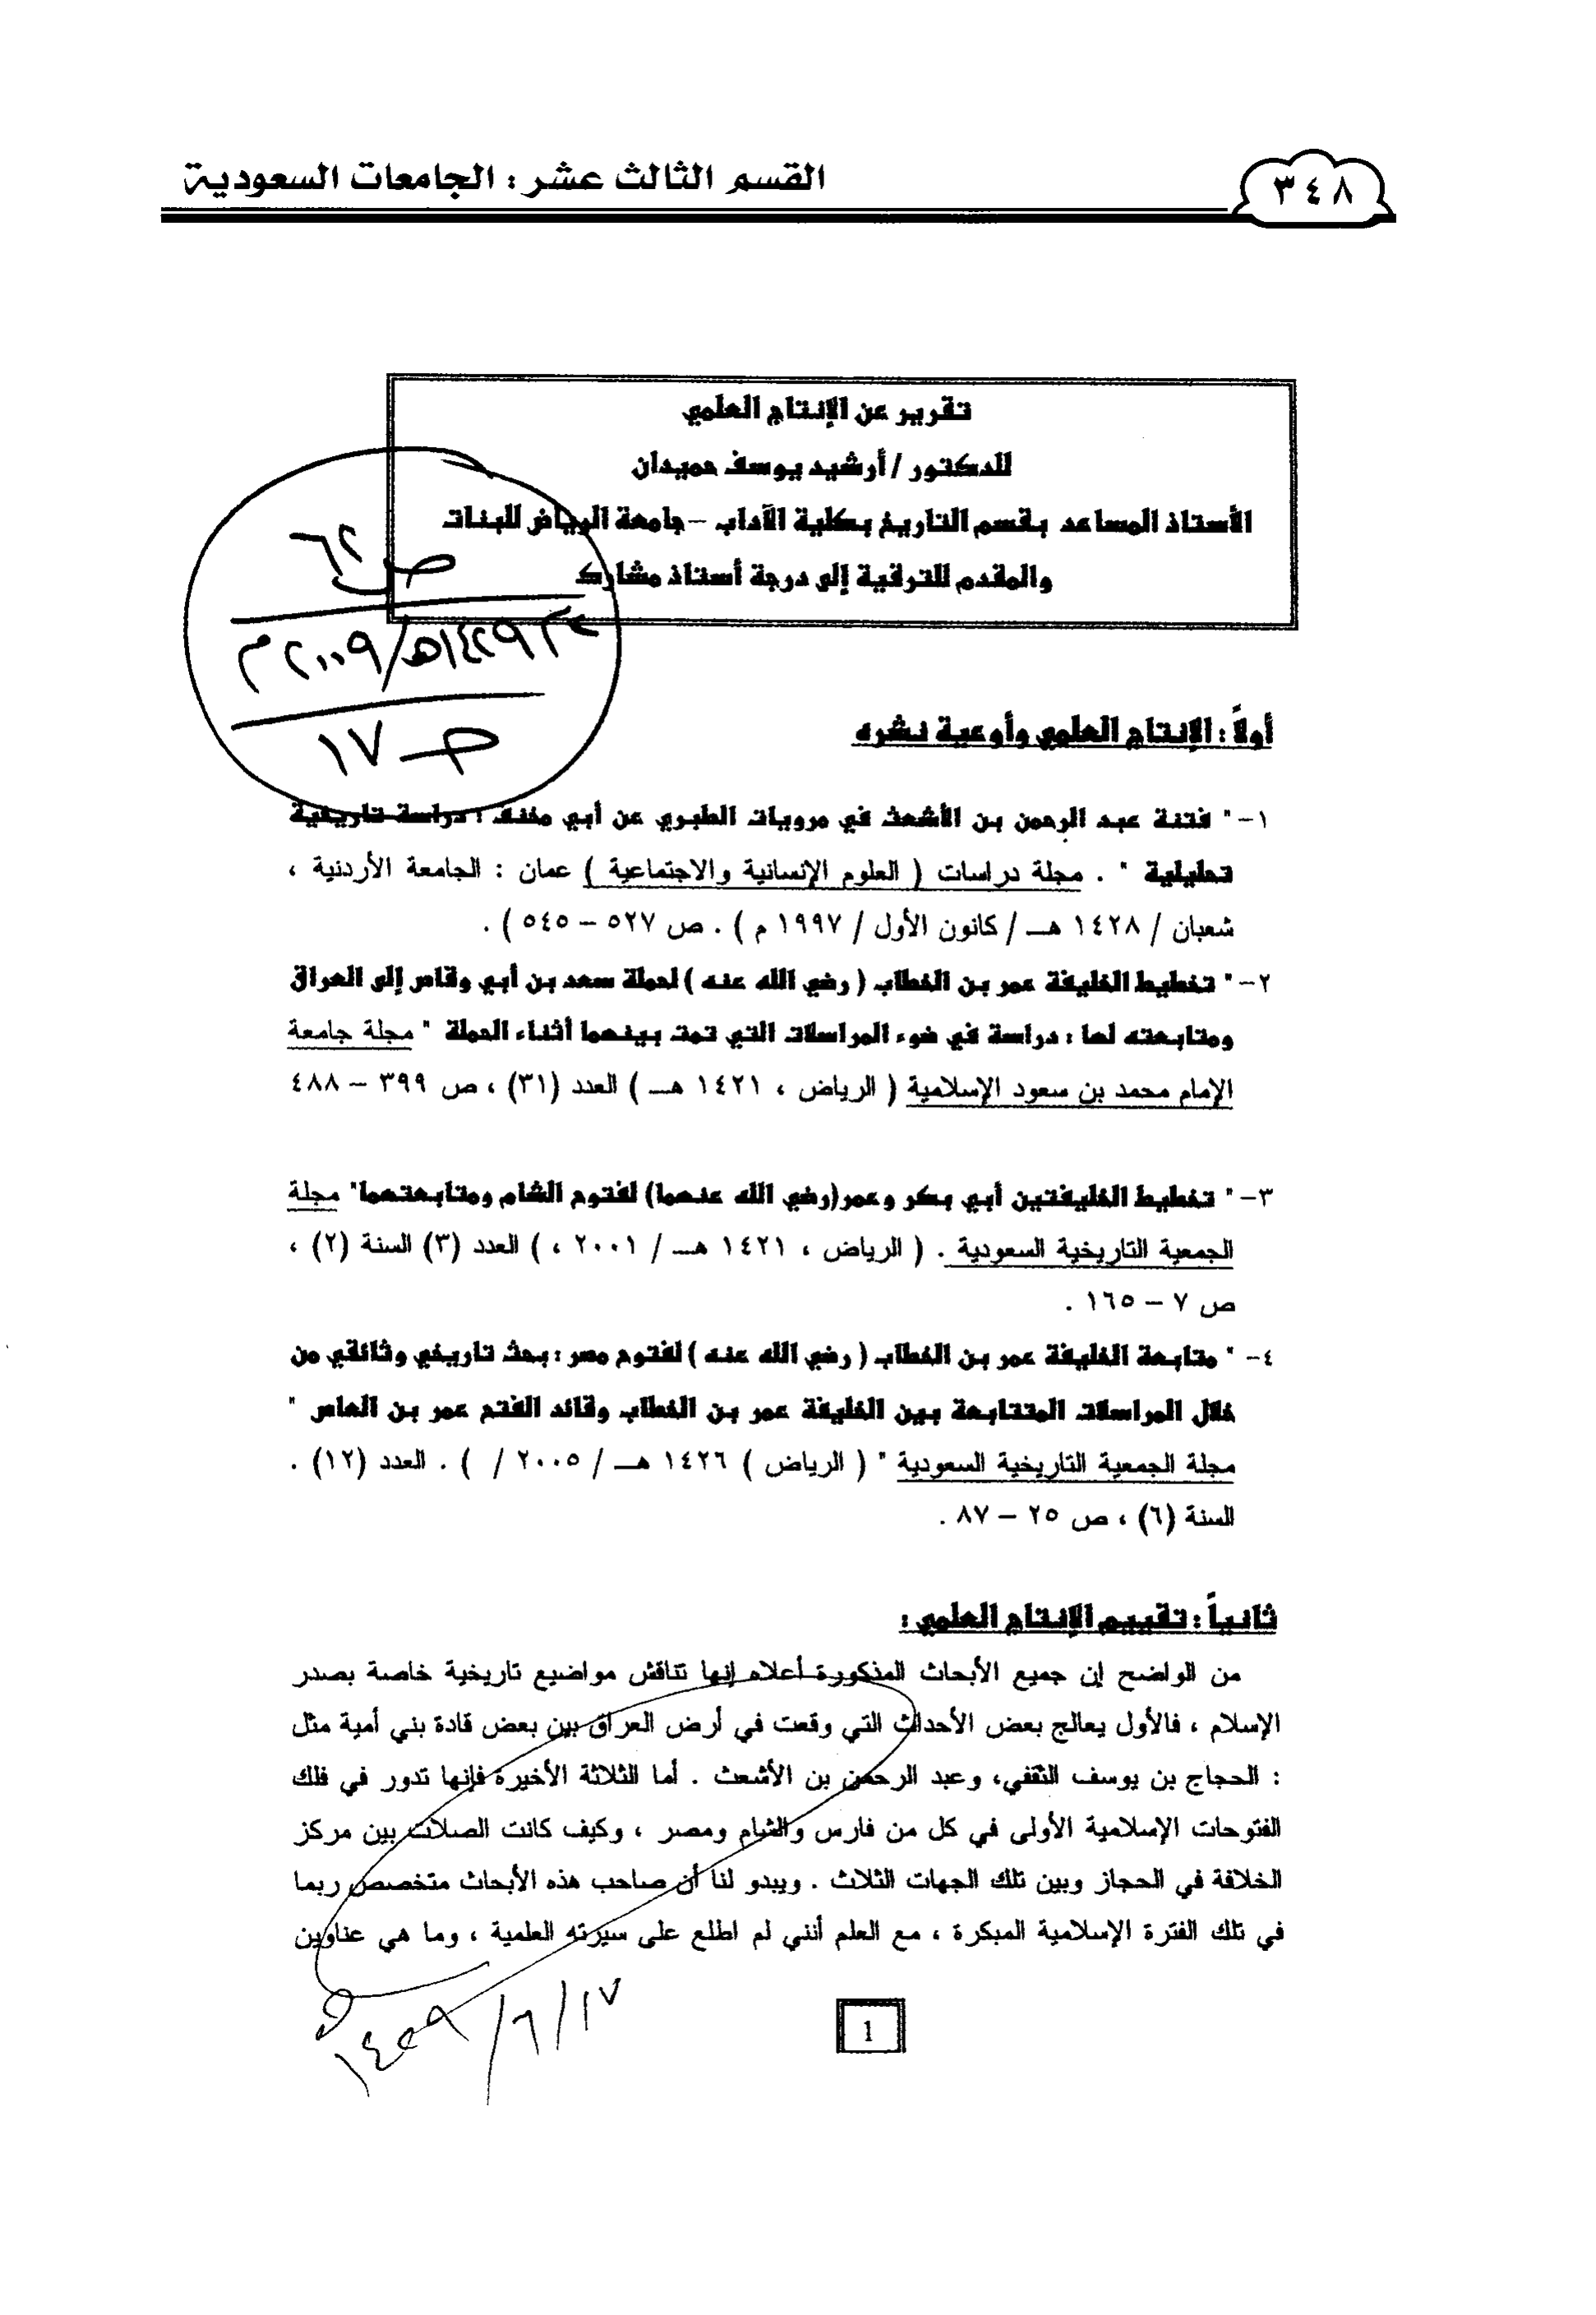 القسم الثالث عشر : الجامعات السعودية
٣٤٨
تقرير عن الإنتاج العلمي
للدكتور / أرشيد يوسف حميدان
الأستاذ المساعد بقسم التاريخ بكلية الآداب – جامعة الرياض للبنات
والمقدم للترقية إلى درجة أستاذ مشارك
١٤٢٩هـ/٢٠٠٩م
ص ١٧
أولاً : الإنتاج العلمي وأوعية نشره
١– " فتنة عبد الرحمن بن الأشعث في مرويات الطبري عن أبي مخنف : دراسة تاريخية
تحليلية " . مجلة دراسات ( العلوم الإنسانية والاجتماعية ) عمان : الجامعة الأردنية ،
شعبان / ١٤٢٨ هـ / كانون الأول / ١٩٩٧ م ) . ص ٥٢٧ – ٥٤٥ ) .
٢– " تخطيط الخليفة عمر بن الخطاب ( رضي الله عنه ) لحملة سعد بن أبي وقاص إلى العراق
ومتابعته لها : دراسة في ضوء المراسلات التي تمت بينهما أثناء الحملة " مجلة جامعة
الإمام محمد بن سعود الإسلامية ( الرياض ، ١٤٢١ هـ ) العدد (٣١) ، ص ٣٩٩ – ٤٨٨
٣– " تخطيط الخليفتين أبي بكر وعمر(رضي الله عنهما) لفتوح الشام ومتابعتهما" مجلة
الجمعية التاريخية السعودية . ( الرياض ، ١٤٢١ هـ / ٢٠٠١ ، ) العدد (٣) السنة (٢) ،
ص ٧ – ١٦٥ .
٤– " متابعة الخليفة عمر بن الخطاب ( رضي الله عنه ) لفتوح مصر : بحث تاريخي وثائقي من
خلال المراسلات المتتابعة بين الخليفة عمر بن الخطاب وقائد الفتح عمر بن العاص "
مجلة الجمعية التاريخية السعودية " ( الرياض ) ١٤٢٦ هـ / ٢٠٠٥ / ) . العدد (١٢) .
السنة (٦) ، ص ٢٥ – ٨٧ .
ثانياً : تقييم الإنتاج العلمي :
من الواضح إن جميع الأبحاث المذكورة أعلاه إنها تناقش مواضيع تاريخية خاصة بصدر
الإسلام ، فالأول يعالج بعض الأحداث التي وقعت في أرض العراق بين بعض قادة بني أمية مثل
: الحجاج بن يوسف الثقفي، وعبد الرحمن بن الأشعث . أما الثلاثة الأخيرة فإنها تدور في فلك
الفتوحات الإسلامية الأولى في كل من فارس والشام ومصر ، وكيف كانت الصلات بين مركز
الخلافة في الحجاز وبين تلك الجهات الثلاث . ويبدو لنا أن صاحب هذه الأبحاث متخصص ربما
في تلك الفترة الإسلامية المبكرة ، مع العلم أنني لم اطلع على سيرته العلمية ، وما هي عناوين
١٧/٦/١٤٢٩
1